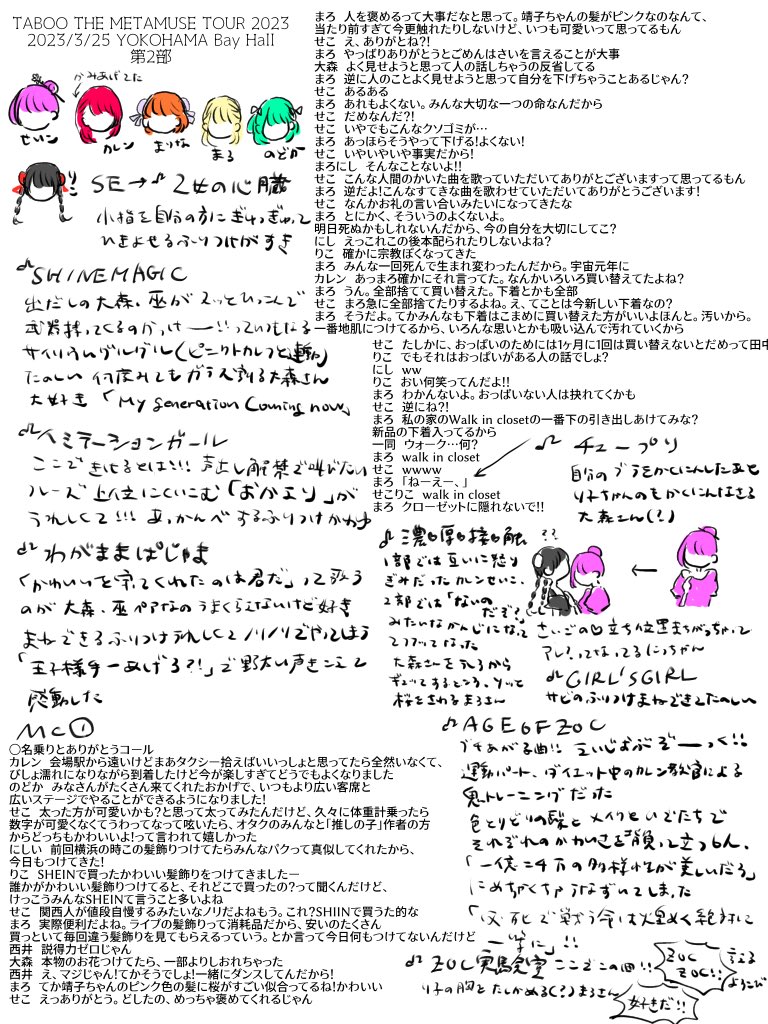 TABOO THE METAMUSE TOUR 2023
2023/3/25 YOKOHAMA Bay Hall
第2部
かみあげてた
せいこ
カレン
まりな
まろ
のどか
りこ
SE→♫乙女の心臓
小指を自分の方にぎゅっぎゅって
ひきよせるふりつけがすき
♫SHINEMAGIC
出だしの大森、巫がスッとひっこんで
武器持ってくるのかっけー!!!っていつもなる
サイリウムグルグル(ピンクトカレフと連動)
たのしい 何度みてもガラス割る大森さん
大好き 「My generation Coming now」
♫イミテーションガール
ここできけるとは!!! 声出し解禁で叫びたい
フレーズ上位にくいこむ「おかえり」が
うれしくて!!! あっかんべするふりつけかわゆ
♫わがままぱじゃま
「かわいいを
君だ」って歌う
のが大森、巫ペアなのうまくいえないけど好き
まねできるふりつけうれしくてノリノリでやってしまう
「王子様手ーあげろ?!」で野太い声きこえて
感動した
MC①
〇名乗りとありがとうコール
カレン 会場駅から遠いけどまあタクシー拾えばいいっしょと思ってたら全然いなくて、
びしょ濡れになりながら到着したけど今が楽しすぎてどうでもよくなりました
のどか みなさんがたくさん来てくれたおかげで、いつもより広い客席と
広いステージでやることができるようになりました!
せこ 太った方が可愛いかも?と思って太ってみたんだけど、久々に体重計乗ったら
数字が可愛くなくてうわってなって呟いたら、オタクのみんなと「推しの子」作者の方
からどっちもかわいいよ!って言われて嬉しかった
にしい 前回横浜の時この髪飾りつけてたらみんなパクって真似してくれたから、
今日もつけてきた!
りこ SHEINで買ったかわいい髪飾りをつけてきましたー
誰かがかわいい髪飾りつけてると、それどこで買ったの?って聞くんだけど、
けっこうみんなSHEINて言うこと多いよね
せこ 関西人が値段自慢するみたいなノリだよねもう。これ?SHIINで買った的な
まろ 実際便利だよね。ライブの髪飾りって消耗品だから、安いのたくさん
買っといて毎回違う髪飾りを見てもらえるっていう。とか言って今日何もつけてないんだけど
西井 説得力ゼロじゃん
大森 本物のお花つけてたら、一部よりしおれちゃった
西井 え、マジじゃん!てかそうでしょ!一緒にダンスしてんだから!
まろ てか靖子ちゃんのピンク色の髪に桜がすごい似合ってるね!かわいい
せこ えっありがとう。どしたの、めっちゃ褒めてくれるじゃん
まろ 人を褒めるって大事だなと思って。靖子ちゃんの髪がピンクなのなんて、
当たり前すぎて今更触れたりしないけど、いつも可愛いって思ってるもん
せこ え、ありがとね?!
まろ やっぱりありがとうとごめんはさいを言えることが大事
大森 よく見せようと思って人の話しちゃうの反省してる
まろ 逆に人のことよく見せようと思って自分を下げちゃうことあるじゃん?
せこ あるある
まろ あれもよくない。みんな大切な一つの命なんだから
せこ だめなんだ?!
せこ いやでもこんなクソゴミが…
まろ あっほらそうやって下げる!よくない!
せこ いやいやいや事実だから!
まろにし そんなことないよ!!
せこ こんな人間のかいた曲を歌っていただいてありがとございますって思ってるもん
まろ 逆だよ!こんなすてきな曲を歌わせていただいてありがとうございます!
せこ なんかお礼の言い合いみたいになってきたな
まろ とにかく、そういうのよくないよ。
明日死ぬかもしれないんだから、今の自分を大切にしてこ?
にし えっこれこの後本配られたりしないよね?
りこ 確かに宗教ぽくなってきた
まろ みんな一回死んで生まれ変わったんだから。宇宙元年に
カレン あっまろ確かにそれ言ってた。なんかいろいろ買い替えてたよね?
まろ うん。全部捨てて買い替えた。下着とかも全部
せこ まろ急に全部捨てたりするよね。え、てことは今新しい下着なの?
まろ そうだよ。てかみんなも下着はこまめに買い替えた方がいいよほんと。汚いから。
一番地肌につけてるから、いろんな思いとかも吸い込んで汚れていくから
せこ たしかに、おっぱいのためには1ヶ月に1回は買い替えないとだめって田中
りこ でもそれはおっぱいがある人の話でしょ?
にし ww
りこ おい何笑ってんだよ!!
まろ わかんないよ。おっぱいない人は抉れてくかも
せこ 逆にね?!
まろ 私の家のWalk in closetの一番下の引き出しあけてみな?
新品の下着入ってるから
一同 ウォーク…何?
まろ walk in closet
せこ wwww
まろ 「ねーえー、」
せこりこ walk in closet
まろ クローゼットに隠れないで!!
♫チューブリ
自分のブラをかくにんしたあと
りこちゃんのもかくにんしたがる
大森さん(?)
♫濃♡厚♡接♡触
1部では互いに怒り
ぎみだったカレンせいこ、
2部では「ないの
だぞ?」
みたいなかんじになって
てフフッてなった
大森さんをうしろから
ギュッてするところ、ソッと
桜をさわるまろさん
??
さいごの♡立ち位置まちがっちゃって
アレ?ってなってるにっちゃん
♫GIRL'S GIRL
サビのふりつけまねできてたのしい
♫AGE OF ZOC
ブチあがる曲!! 互いじょぶぞーっく!!
運動パート、ダイエット中のカレン教官による
鬼トレーニングだった
色とりどりの髪とメイクといでたちで
それぞれのかわいさを
「一億二千万の多様性が美しいだろ」
にめちゃくちゃうなずいてしました
「必死で戦う命は煌めく絶対に
一等に」!!
♫ZOC実験室 ここでこの曲!!
りこの胸をたしかめる(?)まろさん
ZOC
ZOC!!
うえる
よろこび
好きだ!!